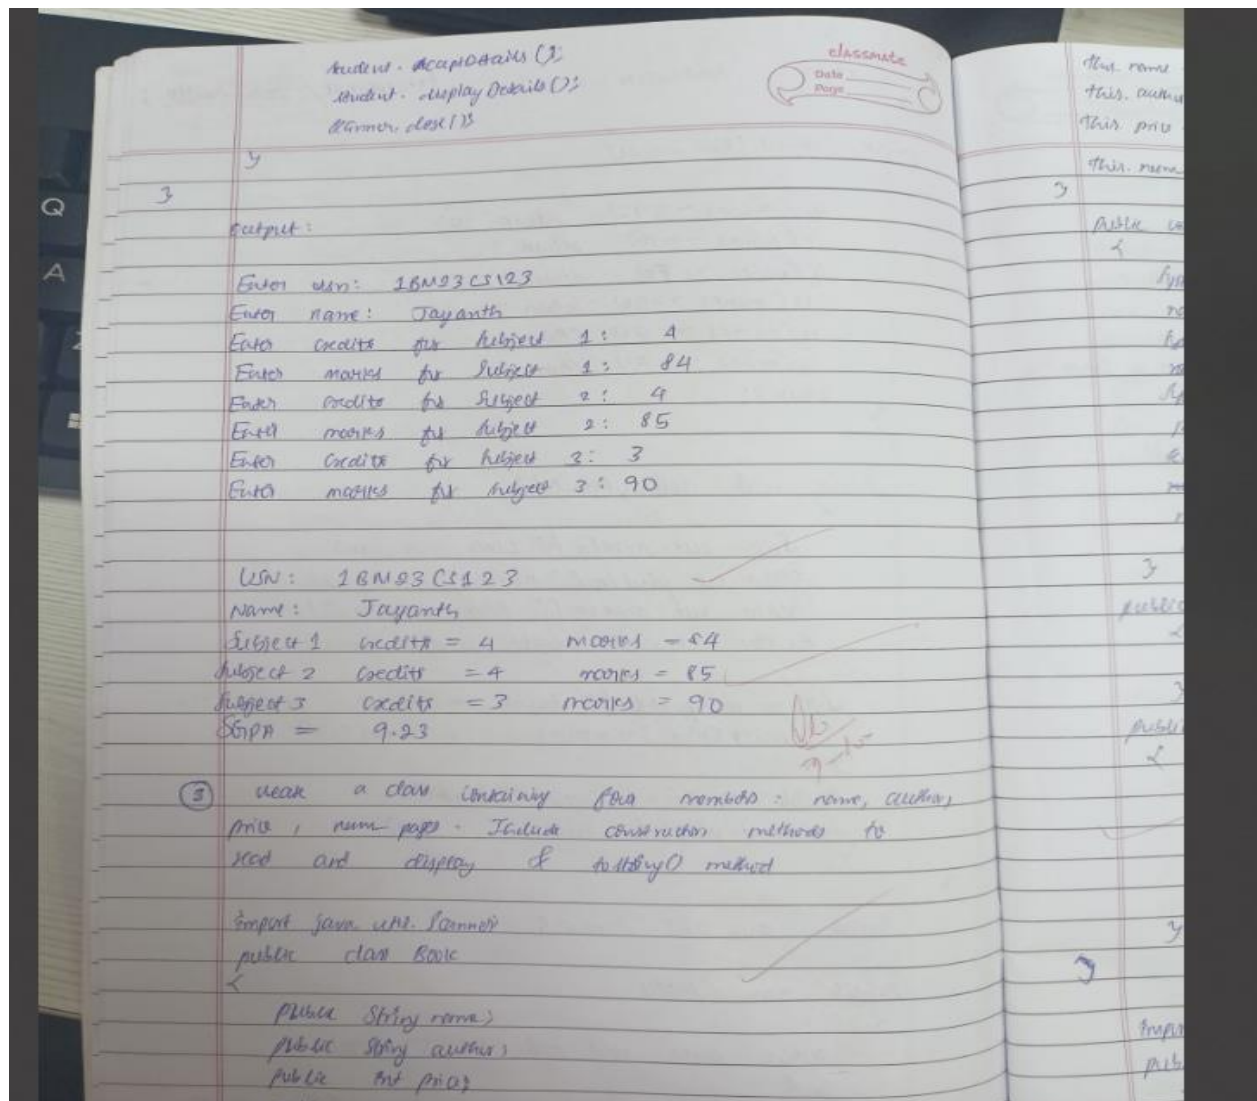 student. acceptDetails ();
student. displayDetails ();
scanner. close ();
}
}
classmate
Date
Page
output:
Enter usn: 1BM23CS123
Enter name: Jayanth
Enter credits for subject 1: 4
Enter marks for subject 1: 84
Enter credits for subject 2: 4
Enter marks for subject 2: 85
Enter credits for subject 3: 3
Enter marks for subject 3: 90
USN: 1BM23CS123
Name: Jayanth
Subject 1 credits = 4 marks = 84
Subject 2 credits = 4 marks = 85
Subject 3 credits = 3 marks = 90
SGPA = 9.23
3 a class containing four members: name, author,
price, num pages. Include constructor methods to
read and display & tostring() method
import java.util.Scanner
public class Book
{
public String name;
public String author;
public int price;
this. name
this. autho
this. price
this. num
}
public
{
}
public
{
}
public
{
}
}
Q
A
Z